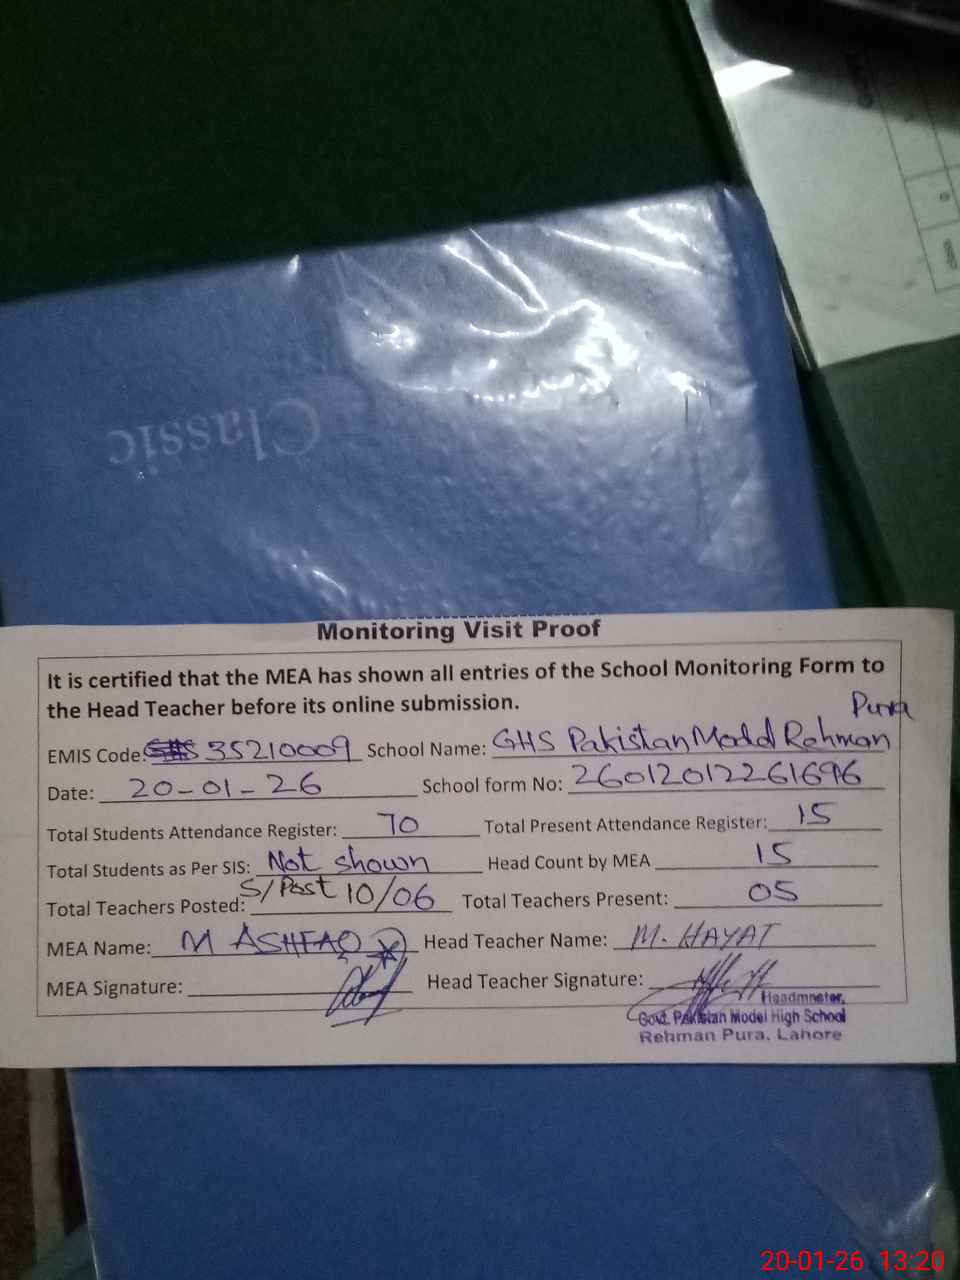 Classic
Monitoring Visit Proof
It is certified that the MEA has shown all entries of the School Monitoring Form to
the Head Teacher before its online submission.
EMIS Code: 35210009 School Name: GHS Pakistan Model Rehman Pura
Date: 20-01-26 School form No: 260120122261696
Total Students Attendance Register: 70 Total Present Attendance Register: 15
Total Students as Per SIS: Not shown Head Count by MEA 15
Total Teachers Posted: S/Post 10/06 Total Teachers Present: 05
MEA Name: M ASHFAQ Head Teacher Name: M. HAYAT
MEA Signature: Head Teacher Signature:
Headmaster,
Govt. Pakistan Model High School
Rehman Pura, Lahore
20-01-26 13:20